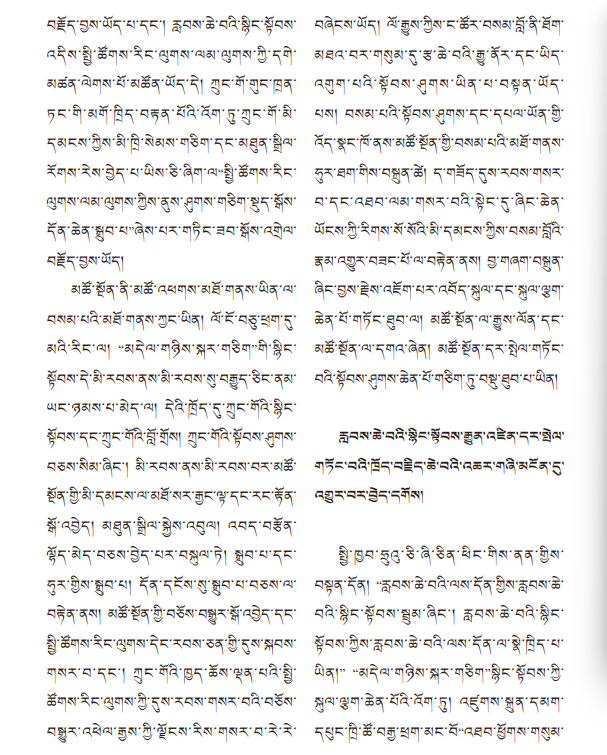 བརྗོད་བྱས་ཡོད་པ་དང་། རླབས་ཆེ་བའི་སྙིང་སྟོབས་
འདིས་སྤྱི་ཚོགས་རིང་ལུགས་ལམ་ལུགས་ཀྱི་དགེ་
མཚན་ལེགས་པོ་མཚོན་ཡོད་དེ། ཀྲུང་གོ་གུང་ཁྲན་
ཏང་གི་མགོ་ཁྲིད་བརྟན་པོའི་འོག་ཏུ་ཀྲུང་གོ་མི་
དམངས་ཀྱིས་མི་ཁྲི་སེམས་གཅིག་དང་མཐུན་སྒྲིལ་
རོགས་རེས་བྱེད་པ་ཡིས་ཅི་ཞིག་ལ“སྤྱི་ཚོགས་རིང་
ལུགས་ལམ་ལུགས་ཀྱིས་ནུས་ཤུགས་གཅིག་སྡུད་སྒོས་
དོན་ཆེན་སྒྲུབ་པ”ཞེས་པར་གཏིང་ཟབ་སྒོས་འགྲེལ་
བརྗོད་བྱས་ཡོད།
མཚོ་སྔོན་ནི་མཚོ་འཕགས་མཐོ་གནས་ཡིན་ལ་
བསམ་པའི་མཐོ་གནས་ཀྱང་ཡིན། ལོ་ངོ་བཅུ་ཕྲག་དུ་
མའི་རིང་ལ། “མདེལ་གཉིས་སྐར་གཅིག”གི་སྙིང་
སྟོབས་དེ་མི་རབས་ནས་མི་རབས་སུ་བརྒྱུད་ཅིང་ནམ་
ཡང་ཉམས་པ་མེད་ལ། དེའི་ཁྲོད་དུ་ཀྲུང་གོའི་སྙིང་
སྟོབས་དང་ཀྲུང་གོའི་བློ་གྲོས། ཀྲུང་གོའི་སྟོབས་ཤུགས་
བཅས་སིམ་ཞིང་། མི་རབས་ནས་མི་རབས་བར་མཚོ་
སྔོན་གྱི་མི་དམངས་ལ་མཐོ་སར་རྒྱང་ལྟ་དང་རང་རྟོན་
སྒོ་འབྱེད། མཐུན་སྒྲིལ་སྐྱེས་འབུལ། འབད་བརྩོན་
ལྷོད་མེད་བཅས་བྱེད་པར་བསྐུལ་ཏེ། སྒྲུབ་པ་དང་
ཧུར་གྱིས་སྒྲུབ་པ། དོན་དངོས་སུ་སྒྲུབ་པ་བཅས་ལ་
བརྟེན་ནས། མཚོ་སྔོན་གྱི་བཅོས་བསྒྱུར་སྒོ་འབྱེད་དང་
སྤྱི་ཚོགས་རིང་ལུགས་དེང་རབས་ཅན་གྱི་དུས་སྐབས་
གསར་བ་དང་། ཀྲུང་གོའི་ཁྱད་ཆོས་ལྡན་པའི་སྤྱི་
ཚོགས་རིང་ལུགས་ཀྱི་དུས་རབས་གསར་བའི་བཅོས་
བསྒྱུར་འཕེལ་རྒྱས་ཀྱི་ལྗོངས་རིས་གསར་བ་རེ་རེ་
བཞེངས་ཡོད། ལོ་རྒྱུས་ཀྱིས་ང་ཚོར་བསམ་བློ་ནི་ཐོག་
མཐའ་བར་གསུམ་དུ་རྩ་ཆེ་བའི་རྒྱུ་ནོར་དང་ཡིད་
འགུག་པའི་སྟོབས་ཤུགས་ཡིན་པ་བསྟན་ཡོད་
པས། བསམ་པའི་སྟོབས་ཤུགས་དང་དཔལ་ཡོན་གྱི་
འོད་སྣང་ཁོ་ནས་མཚོ་སྔོན་གྱི་བསམ་པའི་མཐོ་གནས་
ཧུར་ཐག་གིས་བསྐྲུན་ཚེ། ད་གཟོད་དུས་རབས་གསར་
བ་དང་འཐབ་ལམ་གསར་བའི་སྟེང་དུ་ཞིང་ཆེན་
ཡོངས་ཀྱི་རིགས་སོ་སོའི་མི་དམངས་ཀྱིས་བསམ་བློའི་
རྣམ་འགྱུར་བཟང་པོ་ལ་བརྟེན་ནས། བྱ་གཞག་བསྐྲུན་
ཞིང་བྱས་རྗེས་འཇོག་པར་འབོད་སྐུལ་དང་སྐུལ་ལྕག་
ཆེན་པོ་གཏོང་ཐུབ་ལ། མཚོ་སྔོན་ལ་རྒྱུས་ལོན་དང་
མཚོ་སྔོན་ལ་དགའ་ཞེན། མཚོ་སྔོན་དར་སྤེལ་གཏོང་
བའི་སྟོབས་ཤུགས་ཆེན་པོ་གཅིག་ཏུ་བསྡུ་ཐུབ་པ་ཡིན།
རླབས་ཆེ་བའི་སྙིང་སྟོབས་རྒྱུན་འཛིན་དར་སྤེལ་
གཏོང་བའི་ཁྲོད་བརྗིད་ཆེ་བའི་འཆར་གཞི་མངོན་དུ་
འགྱུར་བར་བྱེད་དགོས།
སྤྱི་ཁྱབ་ཧྲུའུ་ཅི་ཞི་ཅིན་ཕིང་གིས་ནན་གྱིས་
བསྟན་དོན། “རླབས་ཆེ་བའི་ལས་དོན་གྱིས་རླབས་ཆེ་
བའི་སྙིང་སྟོབས་སྦྲུམ་ཞིང་། རླབས་ཆེ་བའི་སྙིང་
སྟོབས་ཀྱིས་རླབས་ཆེ་བའི་ལས་དོན་ལ་སྣེ་ཁྲིད་པ་
ཡིན།” “མདེལ་གཉིས་སྐར་གཅིག”སྙིང་སྟོབས་ཀྱི་
སྐུལ་ལྕག་ཆེན་པོའི་འོག་ཏུ། འཛུགས་སྐྲུན་དམག་
དཔུང་ཁྲི་ཚོ་བརྒྱ་ཕྲག་མང་པོ“འཐབ་ཕྱོགས་གསུམ་